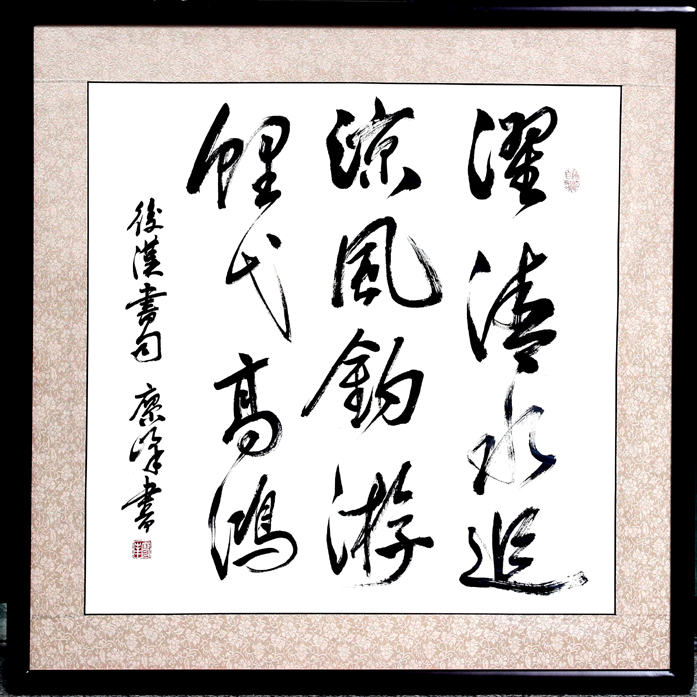 濯清水追
涼風釣游
鯉弋高鴻
後漢書句 康峰書